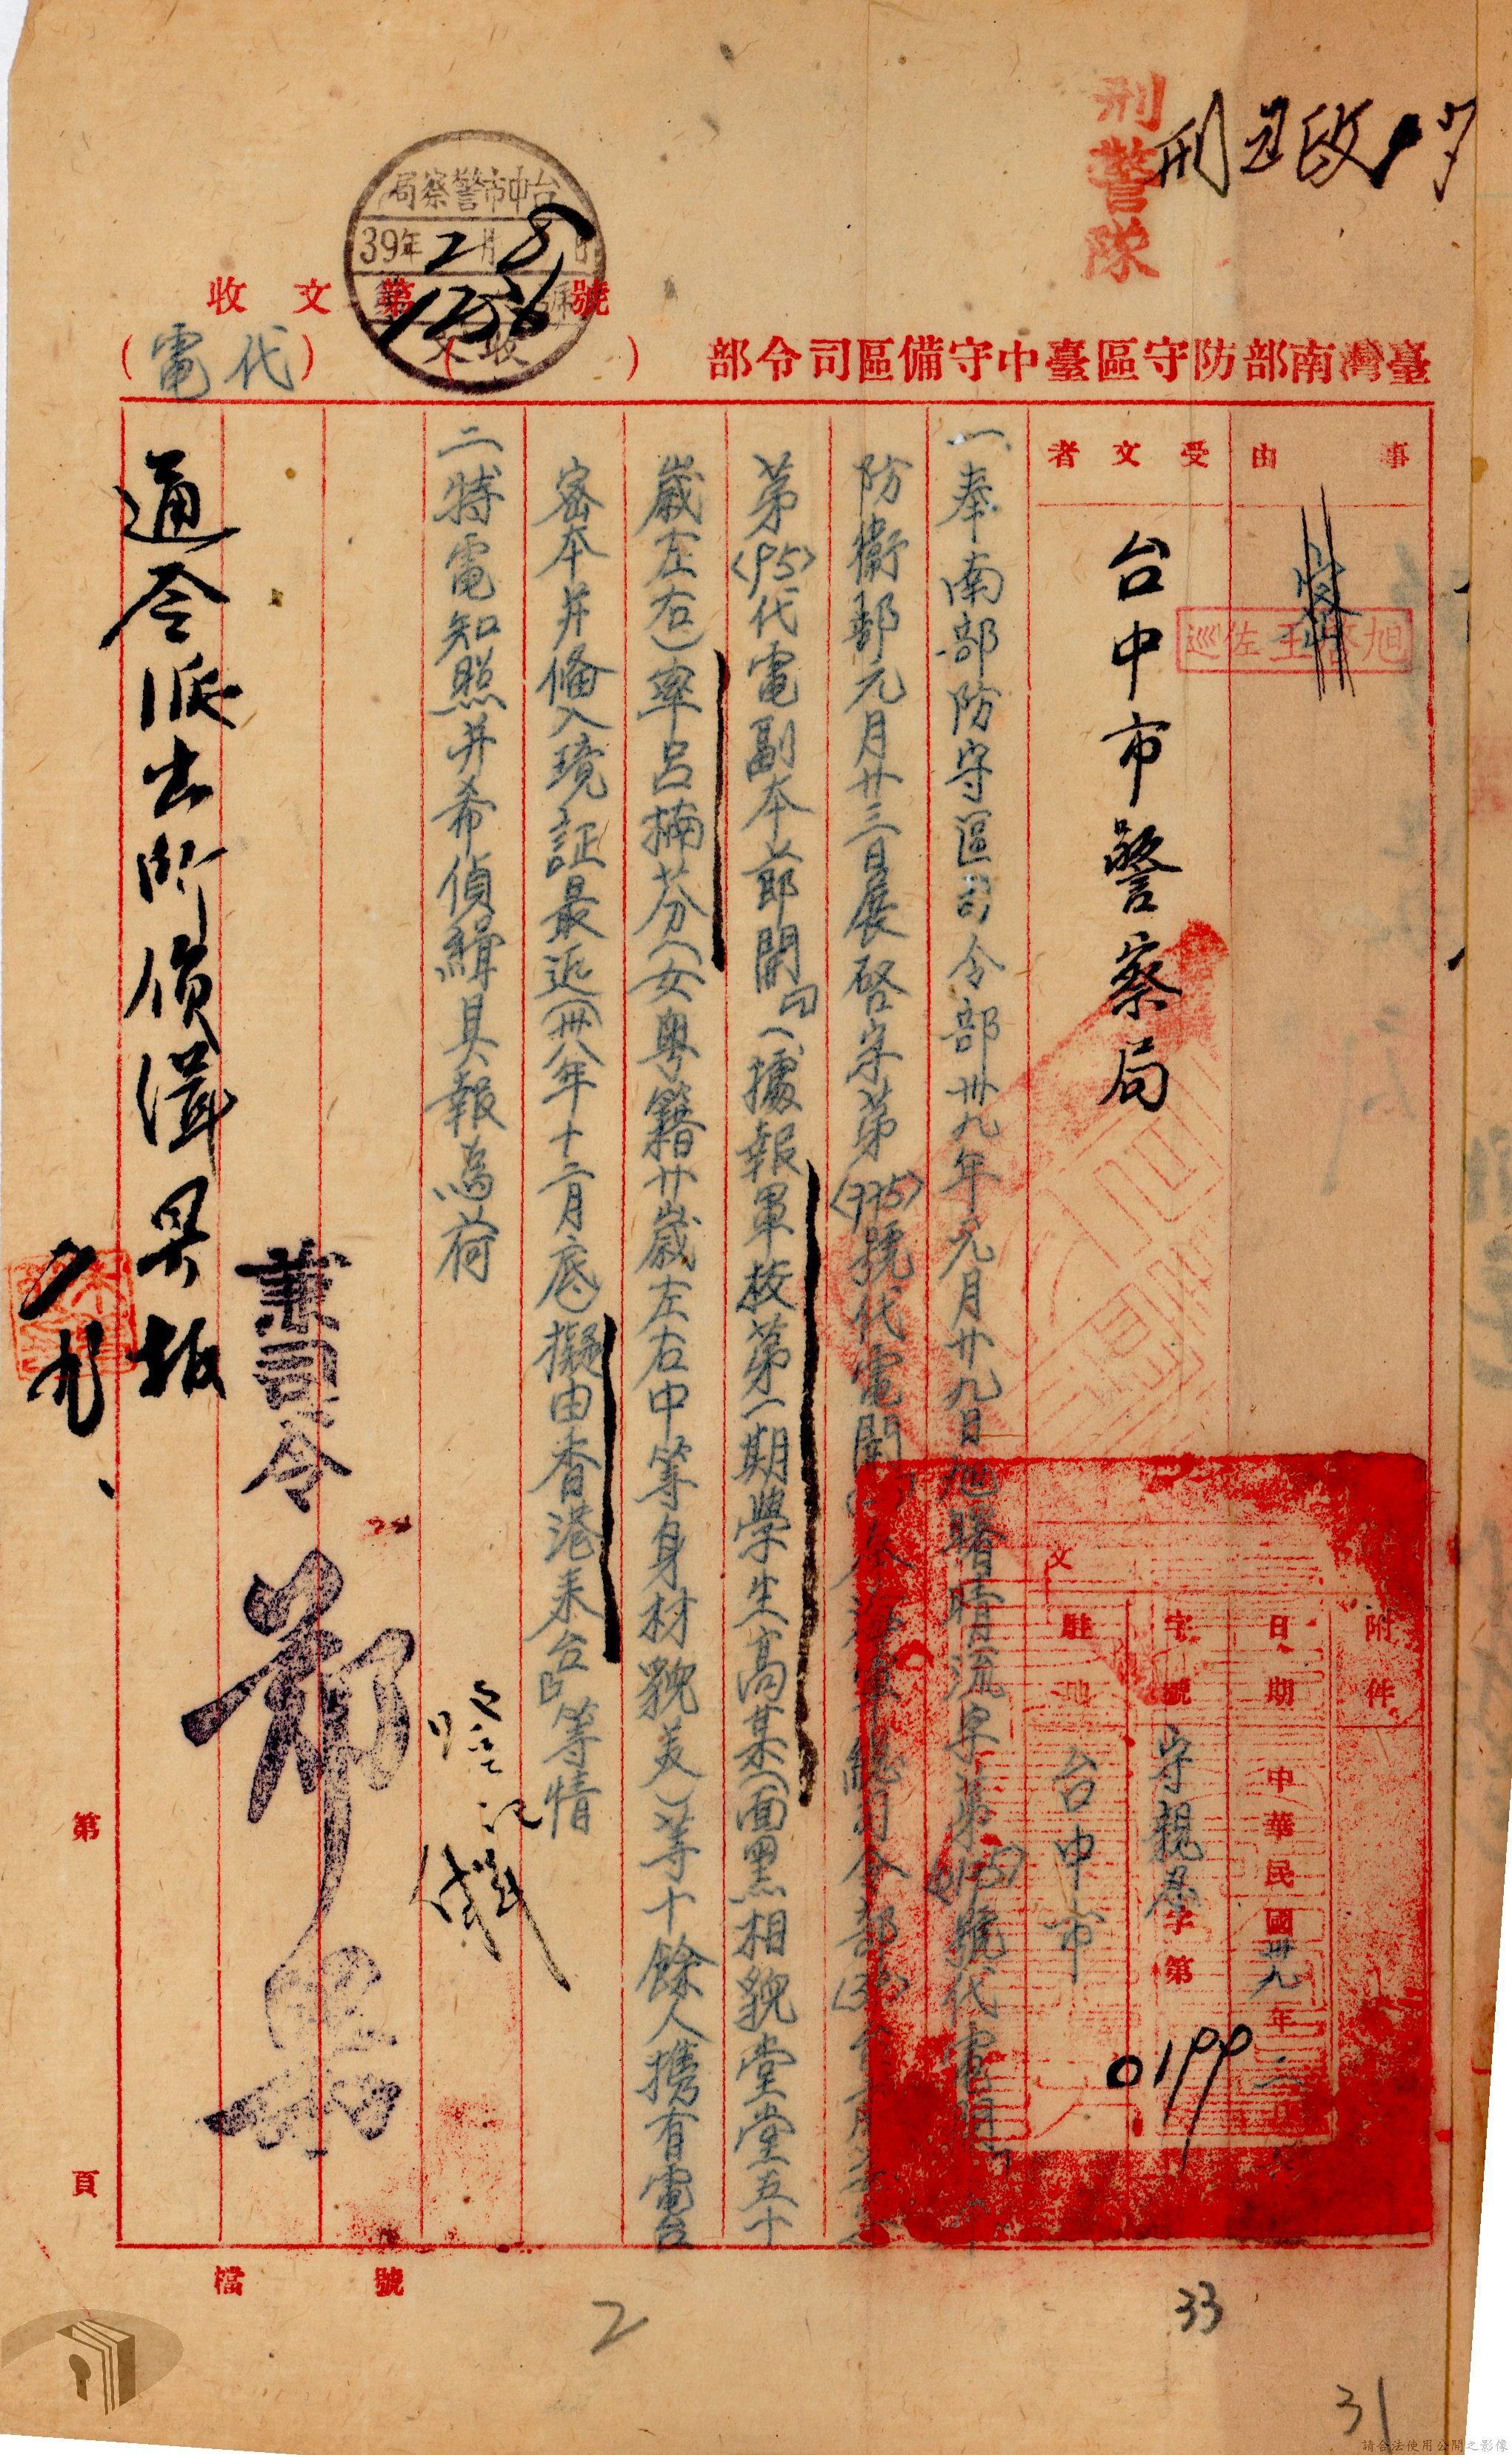 刑警隊
台中市警察局
39年2月8日
第1256號
收文
收文第 號
臺灣南部防守區臺中守備區司令部
(代電)
事由
受文者
台中市警察局
巡佐王啓旭
附件
日期
中華民國卅九年二月
字號
字第
0199
駐地
台中市
一、奉南部防守區司令部卅九年元月廿九日旭曙晴流字第 號代電開
防衛部元月廿三日展啓字第〈775〉號代電開 海軍總司令部
第〈95〉代電副本節開「一、據報軍校第一期學生高某(面黑相貌堂堂五十
歲左右)率呂楠芬(女粵籍廿歲左右中等身材貌美)等十餘人携有電台
密本并俻入境証最近(卅八年十二月底)擬由香港來台」等情
二、特電知照并希偵緝具報為荷
兼司令
鄭果
通令派出所偵緝具報
第 頁
檔號
2
33
31
請合法使用公開之影像